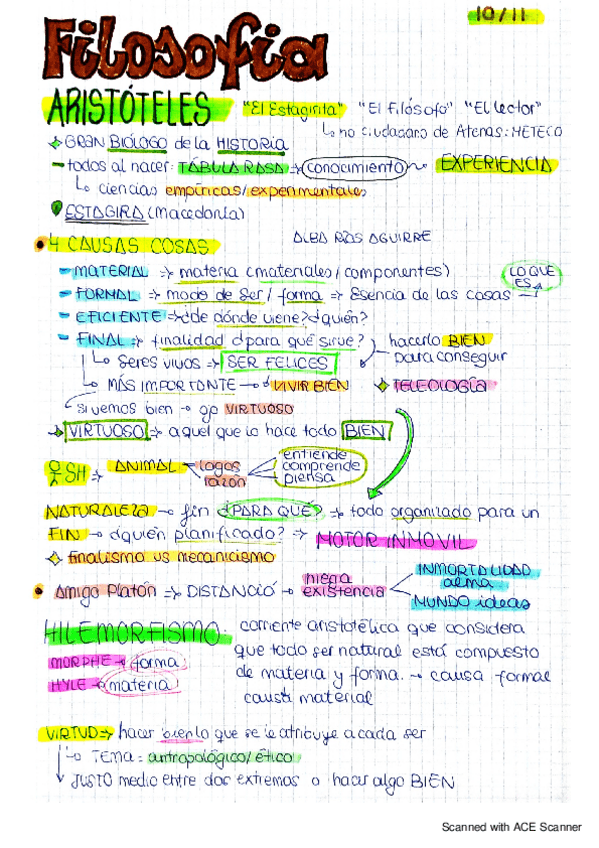 10/11
Filosofia
ARISTÓTELES "El Estagirita" "El Filósofo" "El lector"
↳ no ciudadano de Atenas: METECO
GRAN BIÓLOGO de la HISTORIA
todos al nacer: TÁBULA RASA → conocimiento EXPERIENCIA
↳ ciencias empíricas/experimentales
ESTAGIRA (Macedonia)
4 CAUSAS COSAS ALBA RÍOS AGUIRRE
- MATERIAL → materia (materiales/componentes)
- FORMAL → modo de ser/forma → Esencia de las cosas → LO QUE ES
- EFICIENTE → ¿de dónde viene? ¿quién?
- FINAL → finalidad ¿para qué sirve? hacerlo BIEN para conseguir
↳ Seres vivos → SER FELICES
↳ MÁS IMPORTANTE → VIVIR BIEN TELEOLOGÍA
Si vemos bien → VIRTUOSO
→ VIRTUOSO → aquel que lo hace todo BIEN
SH → ANIMAL logos razón entiende comprende piensa
NATURALEZA → fin ¿PARA QUÉ? → todo organizado para un
FIN → ¿quién planificado? → MOTOR INMOVIL
finalismo vs mecanicismo
• Amigo Platón → DISTANCIÓ → niega existencia INMORTALIDAD alma
MUNDO ideas
HILEMORFISMO: corriente aristotélica que considera
MORPHE → forma que todo ser natural está compuesto
HYLE → materia de materia y forma. → causa formal
causa material
VIRTUD → hacer bien lo que se le atribuye a cada ser
↳ TEMA: antropológico/ético
↓ JUSTO medio entre dos extremos o hacer algo BIEN
Scanned with ACE Scanner